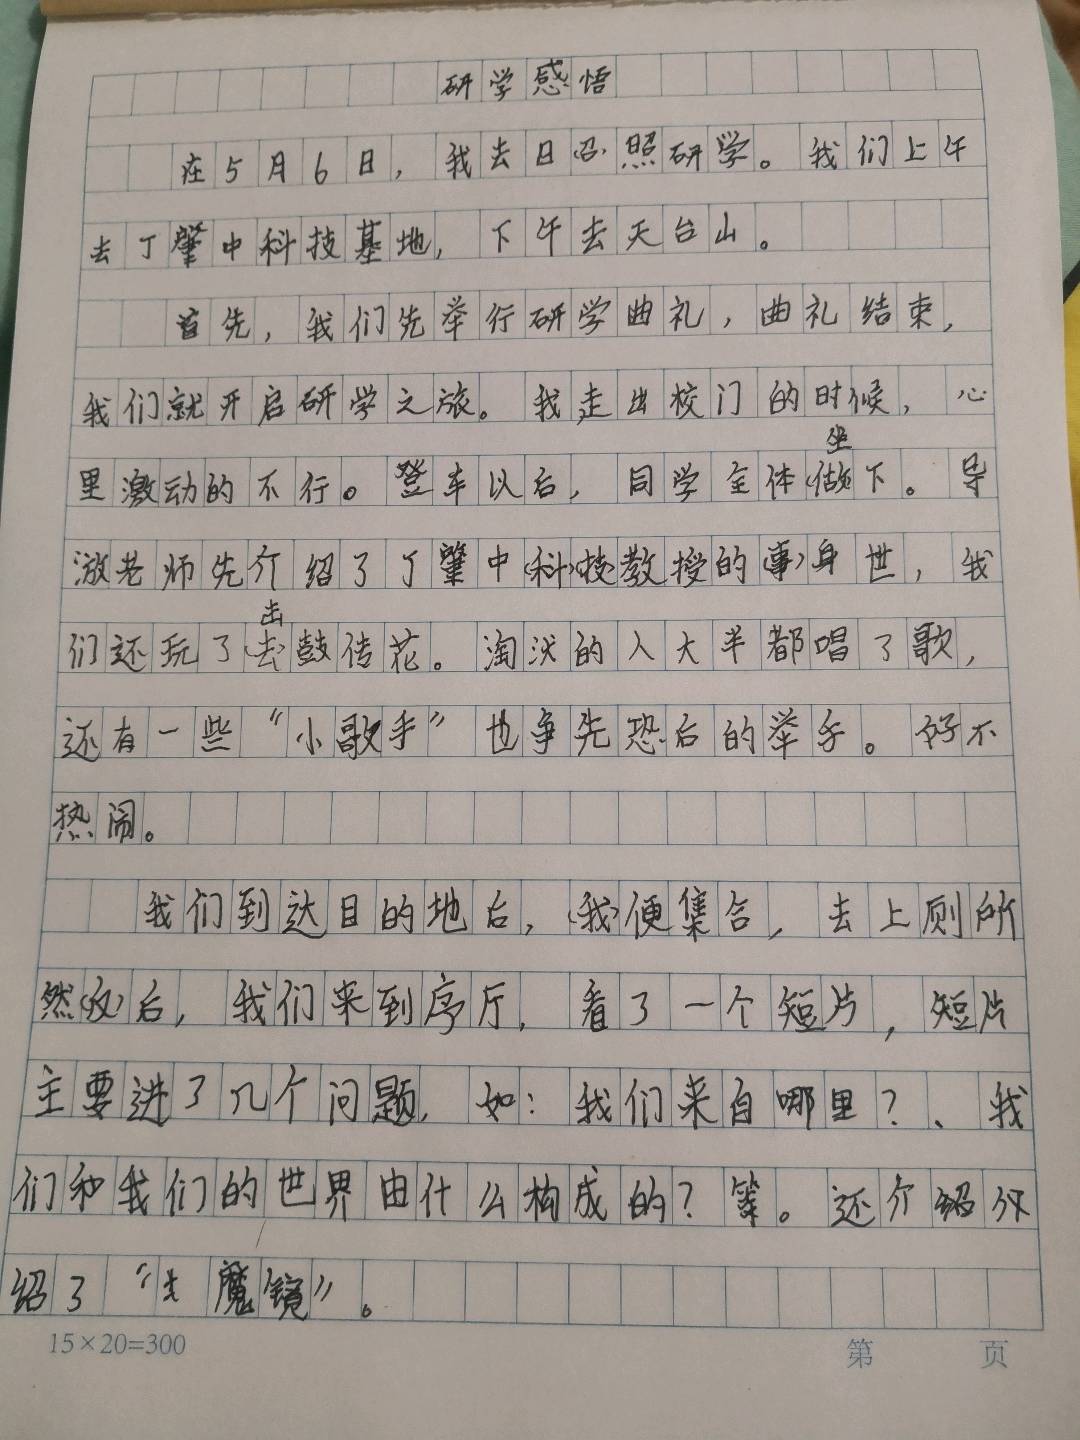 研学感悟
在5月6日，我去日(召)照研学。我们上午
去丁肇中科技基地，下午去天台山。
首先，我们先举行研学曲礼，曲礼结束，
我们就开启研学之旅。我走出校门的时候，心
里激动的不行。登车以后，同学全体(做)坐下。导
游老师先介绍了丁肇中(科)(技)教授的(事)身世，我
们还玩了(去)击鼓传花。淘汰的人大半都唱了歌，
还有一些“小歌手”也争先恐后的举手。好不
热闹。
我们到达目的地后，(我)便集合，去上厕所
然(以)后，我们来到序厅，看了一个短片，短片
主要进了几个问题，如：我们来自哪里？、我
们和我们的世界由什么构成的？等。还介绍介
绍了“魔镜”。
15×20=300
第 页